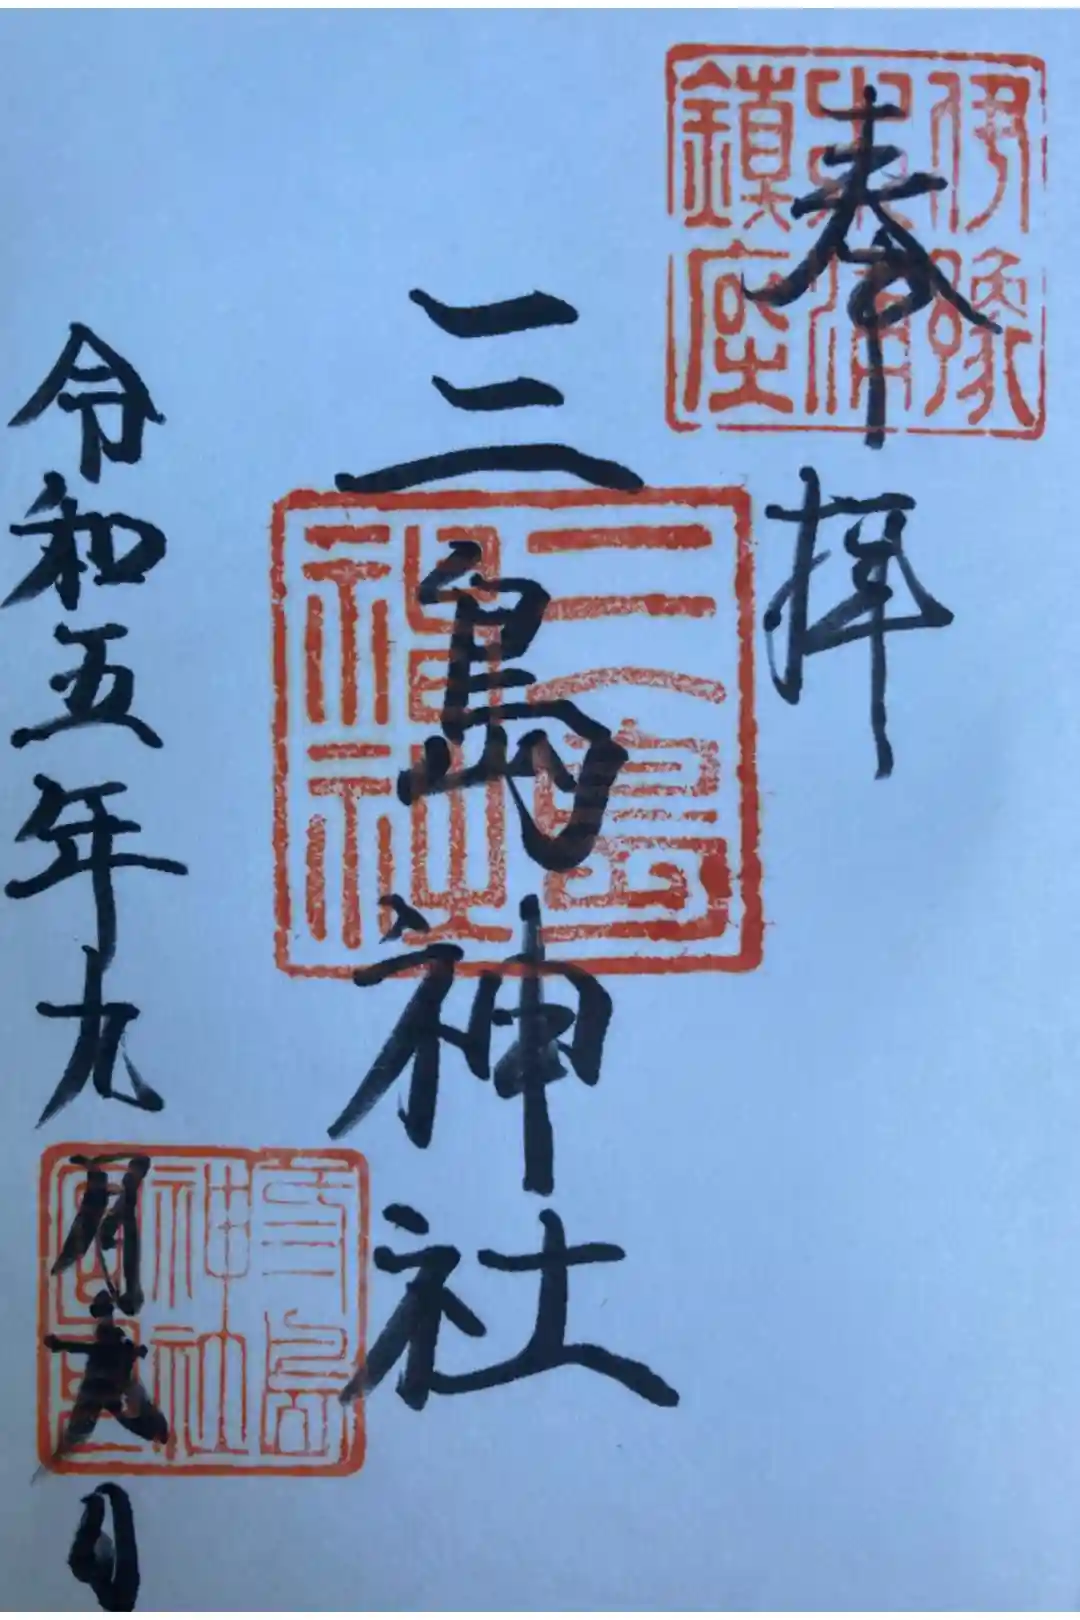 伊豫
鎮座
奉拝
三島神社
三島
神社
令和五年九月六日
三島
神社
宮司